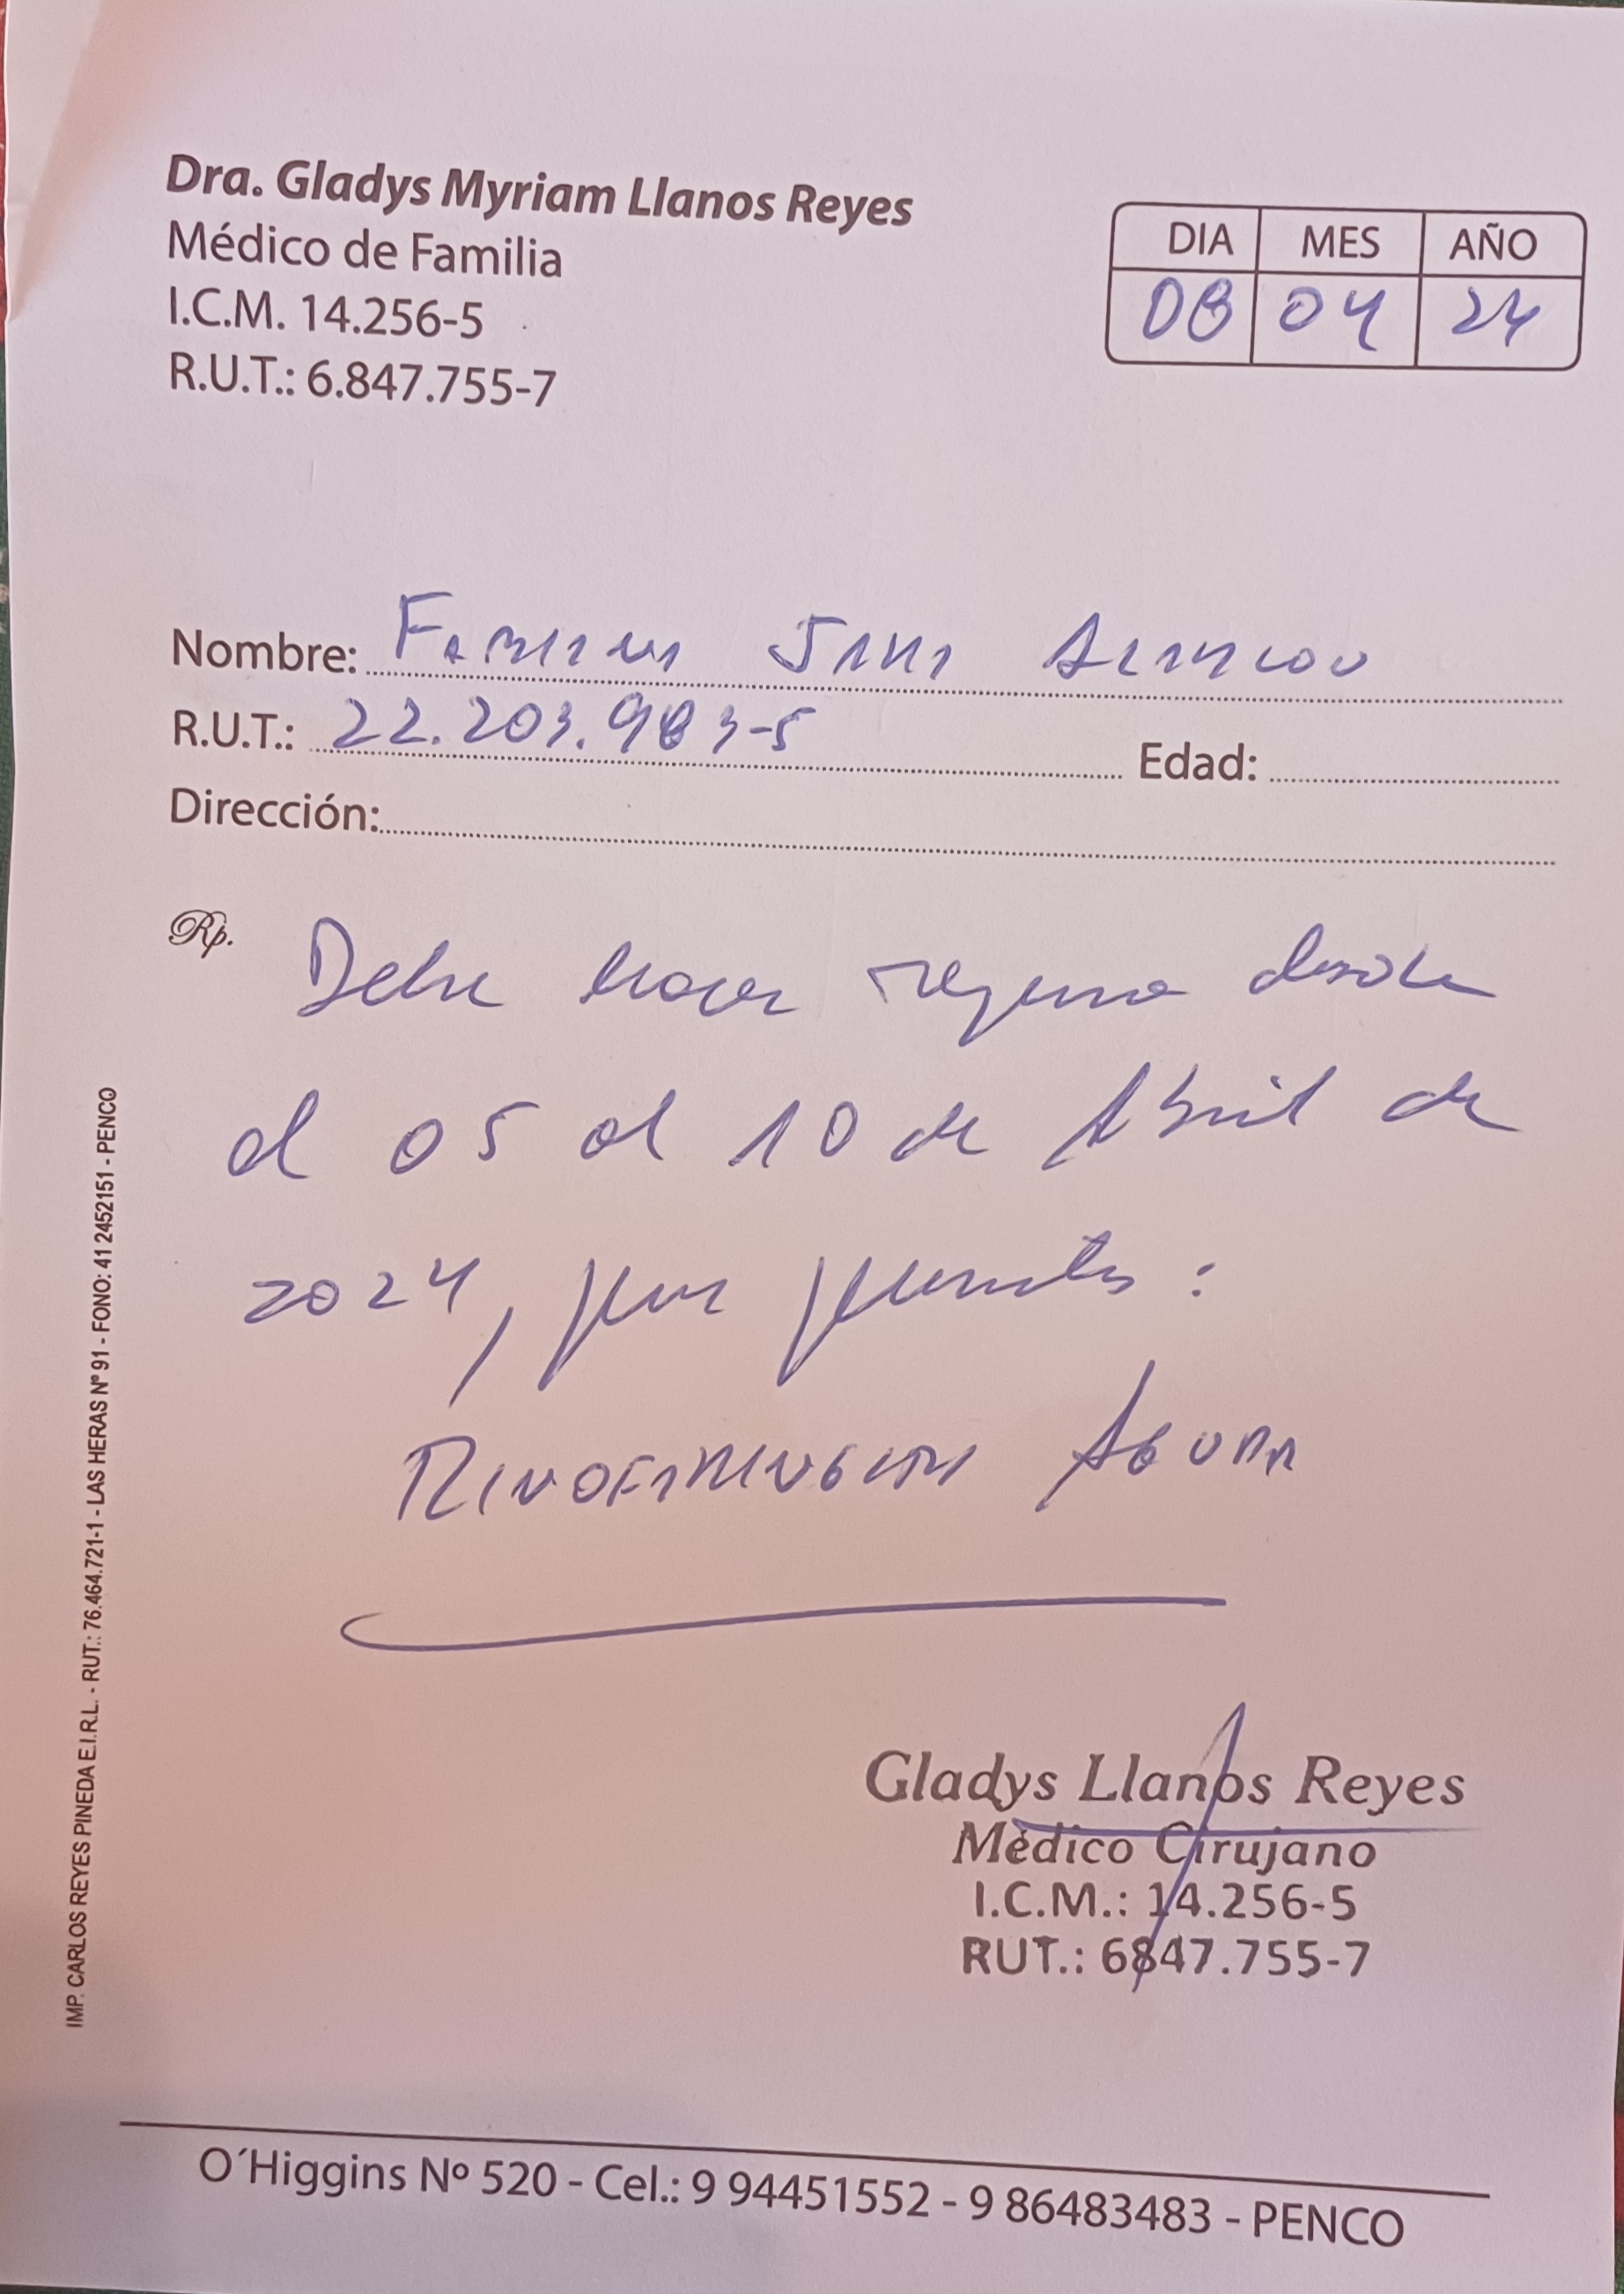 Dra. Gladys Myriam Llanos Reyes
Médico de Familia
I.C.M. 14.256-5
R.U.T.: 6.847.755-7
DIA MES AÑO
08 04 24
Nombre:
R.U.T.: 22.203.983-5 Edad:
Dirección:
Rp. Debe hacer reposo desde
el 05 al 10 de Abril de
2024, por presentar:
RINOFARINGITIS AGUDA
Gladys Llanos Reyes
Mèdico Cirujano
I.C.M.: 14.256-5
RUT.: 6847.755-7
O´Higgins Nº 520 - Cel.: 9 94451552 - 9 86483483 - PENCO
IMP. CARLOS REYES PINEDA E.I.R.L. - RUT.: 76.464.721-1 - LAS HERAS Nº 91 - FONO: 41 2452151 - PENCO